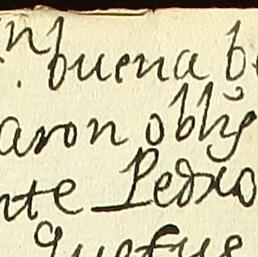 n buena b
aron oblig
nte Pedro
que fue